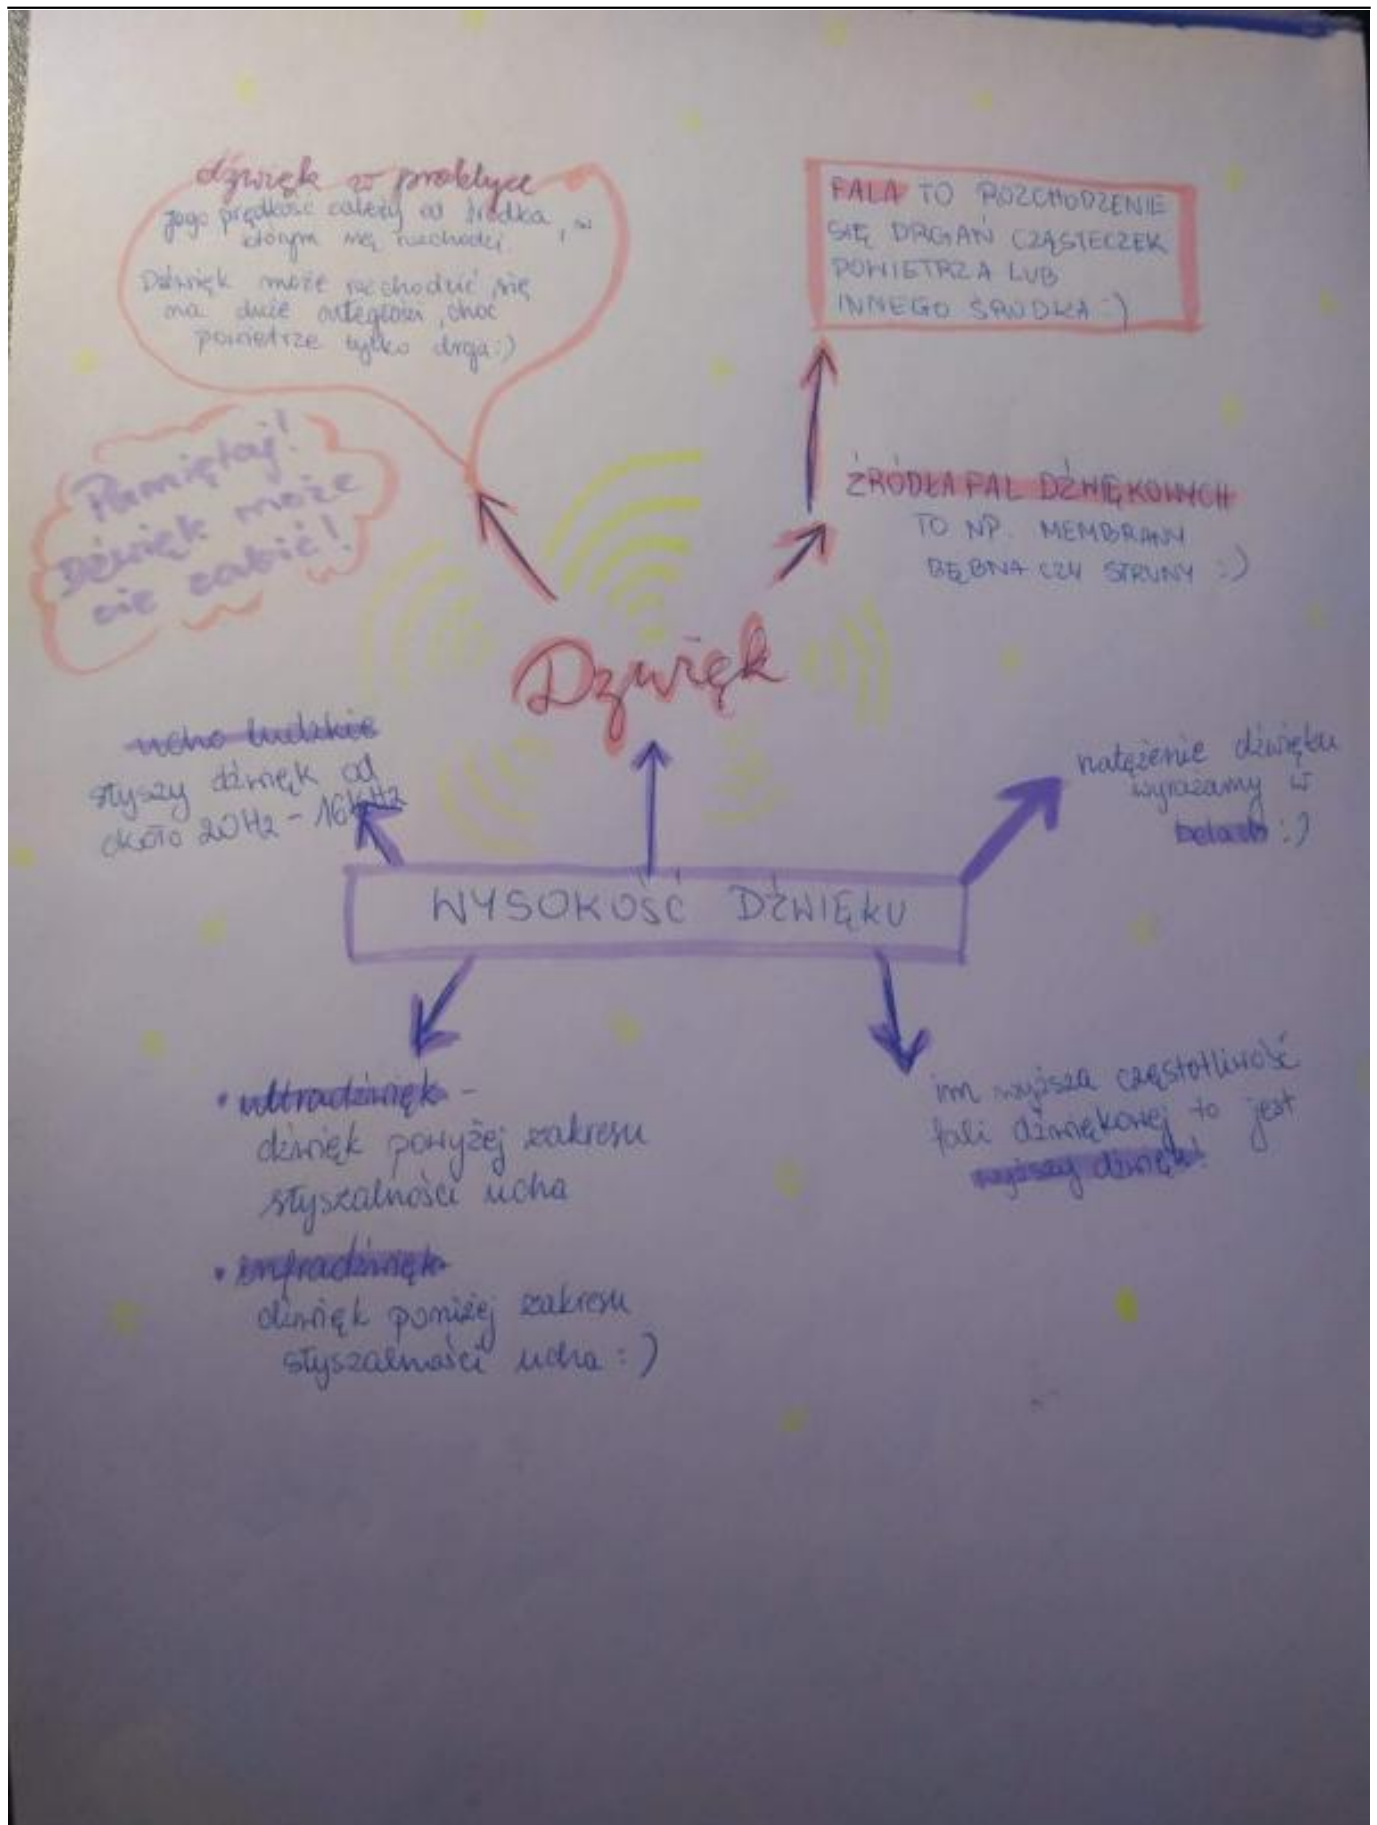 dźwięk w praktyce
jego prędkość zależy od środka, w
którym się rozchodzi
Dźwięk może rozchodzić się
na duże odległości, choć
powietrze tylko drga:)
FALA TO ROZCHODZENIE
SIĘ DRGAŃ CZĄSTECZEK
POWIETRZA LUB
INNEGO :)
Pamiętaj!
Dźwięk może
cię zabić!
ŹRÓDŁA FAL DŹWIĘKOWYCH
TO NP. MEMBRANY
BĘBNA CZY STRUNY :)
Dźwięk
ucho ludzkie
słyszy dźwięk od
około 20Hz - 16kHz
natężenie dźwięku
wyrażamy w
belach :)
WYSOKOŚĆ DŹWIĘKU
• ultradźwięk -
dźwięk powyżej zakresu
słyszalności ucha
• infradźwięk
dźwięk poniżej zakresu
słyszalności ucha :)
im wyższa częstotliwość
fali dźwiękowej to jest
wyższy dźwięk!